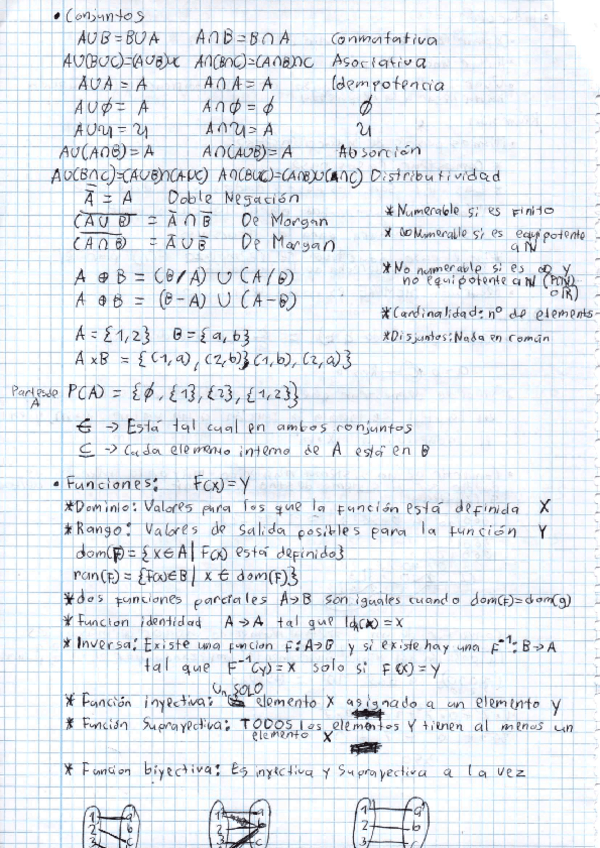 • Conjuntos
A∪B=B∪A A∩B=B∩A Conmutativa
A∪(B∪C)=(A∪B)∪C A∩(B∩C)=(A∩B)∩C Asociativa
A∪A=A A∩A=A Idempotencia
A∪∅=A A∩∅=∅ ∅
A∪U=U A∩U=A U
A∪(A∩B)=A A∩(A∪B)=A Absorción
A∪(B∩C)=(A∪B)∩(A∪C) A∩(B∪C)=(A∩B)∪(A∩C) Distributividad
A̿ = A Doble Negación
(A∪B)̅ = A̅∩B̅ De Morgan
(A∩B)̅ = A̅∪B̅ De Morgan
* Numerable si es finito
* ∞ Numerable si es equipotente
a ℕ
* No numerable si es ∞ y
no equipotente a ℕ (P(ℕ)
o ℝ)
* Cardinalidad: nº de elements
* Disjuntos: Nada en román
A ⊕ B = (B/A) ∪ (A/B)
A ⊕ B = (B-A) ∪ (A-B)
A={1,2} B={a,b}
A×B = {(1,a),(2,b),(1,b),(2,a)}
Partes de
A
P(A) = {∅,{1},{2},{1,2}}
∈ → Está tal cual en ambos conjuntos
⊆ → Cada elemento interno de A está en B
• Funciones: F(x)=Y
* Dominio: Valores para los que la función está definida X
* Rango: Valores de salida posibles para la función Y
dom(F)={x∈A| F(x) está definido}
ran(F)={f(x)∈B| x ∈ dom(F)}
* dos funciones parciales A→B son iguales cuando dom(F)=dom(g)
* Funcion identidad A→A tal que Id_A(x)=x
* Inversa: Existe una funcion F:A→B y si existe hay una F⁻¹:B→A
tal que F⁻¹(y)=x solo si F(x)=Y
* Función inyectiva: Un SOLO elemento X asignado a un elemento Y
* Función Suprayectiva: TODOS los elementos Y tienen al menos un
elemento X
* Funcion biyectiva: Es inyectiva y Suprayectiva a la vez
1 a 1 a 1 a
2 b 2 b 2 b
3 c 3 c 3 c